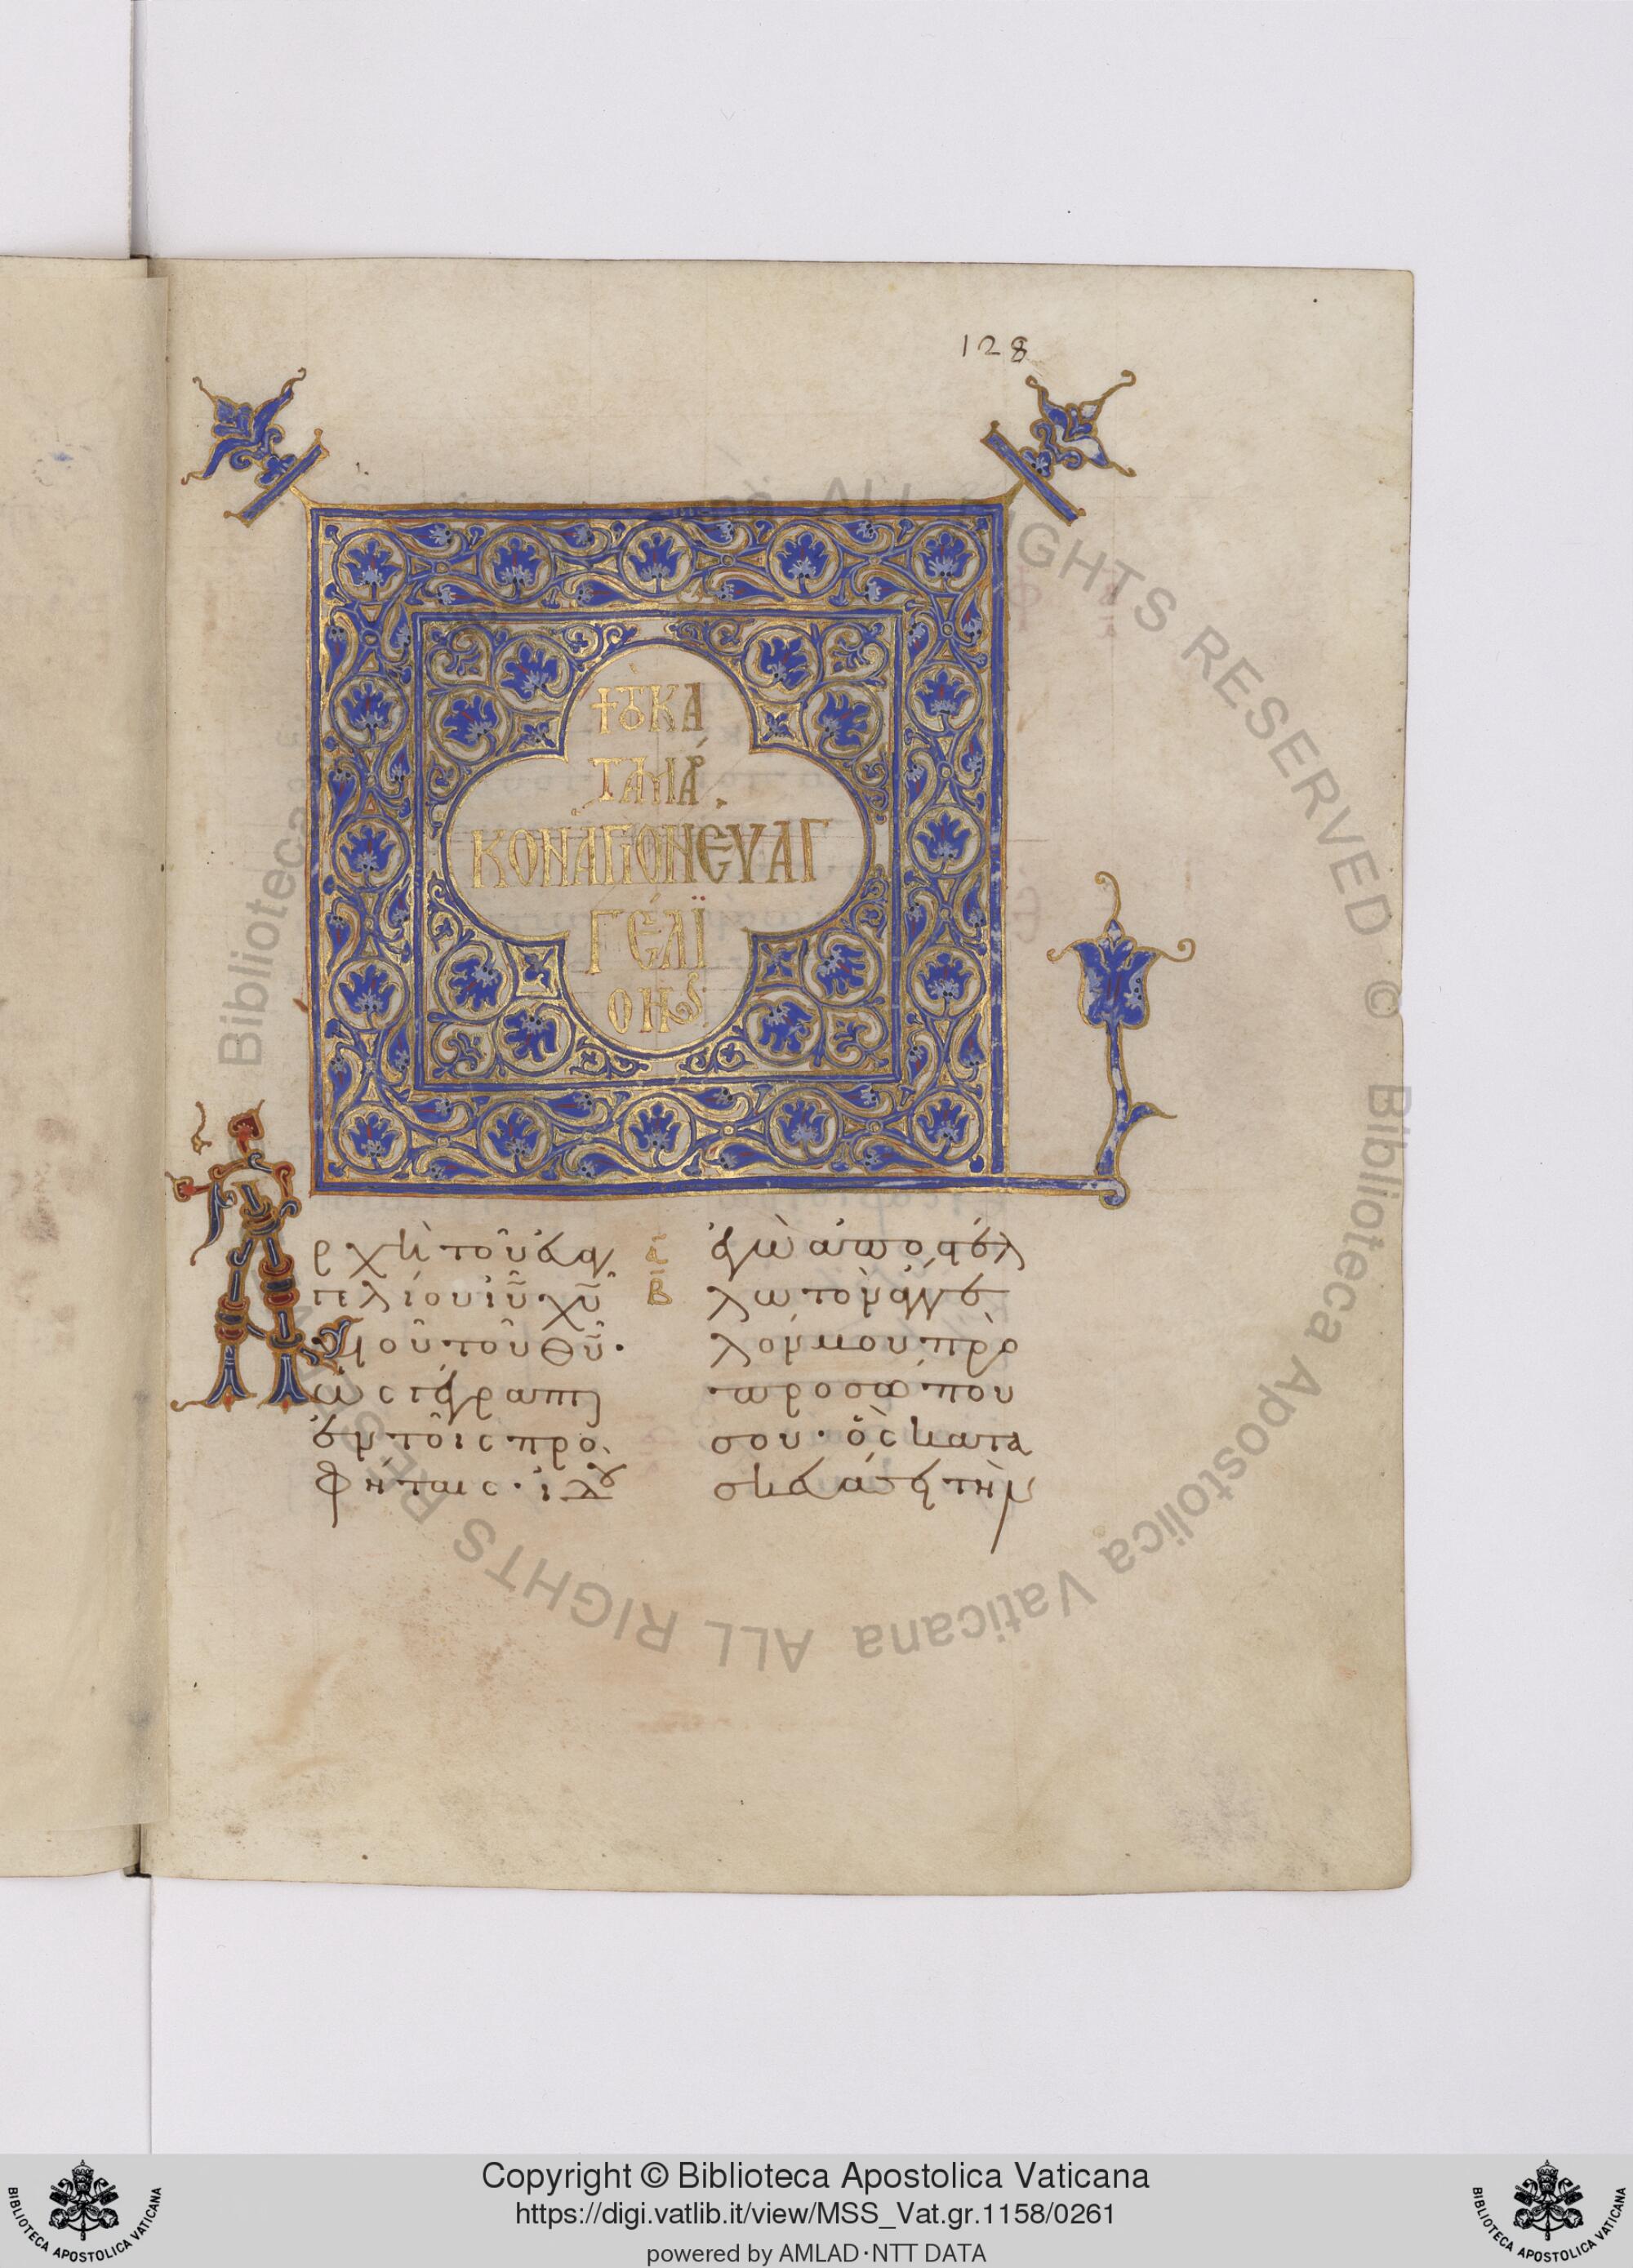 128
† τὸ ΚΑ
ΤΑ ΜΆΡ
ΚΟΝ ἍΓΙΟΝ ΕΥΑΓ
ΓΈΛΪ
ΟΝ
ρχὴ τοῦ εὐαγ
γελίου ιῦ χῦ
υἱοῦ τοῦ θῦ·
ὡς γέγραπται
ἐν τοῖς προ
φήταις· ἰδου
α
β
ἐγὼ ἀποστέλ
λω τὸν ἄγγε
λόν μου πρὸ
προσώπου
σου· ὃς κατα
σκευάσει τὴν
Biblioteca Apostolica Vaticana ALL RIGHTS RESERVED ©
Copyright © Biblioteca Apostolica Vaticana
https://digi.vatlib.it/view/MSS_Vat.gr.1158/0261
powered by AMLAD·NTT DATA
BIBLIOTECA APOSTOLICA VATICANA
BIBLIOTECA APOSTOLICA VATICANA